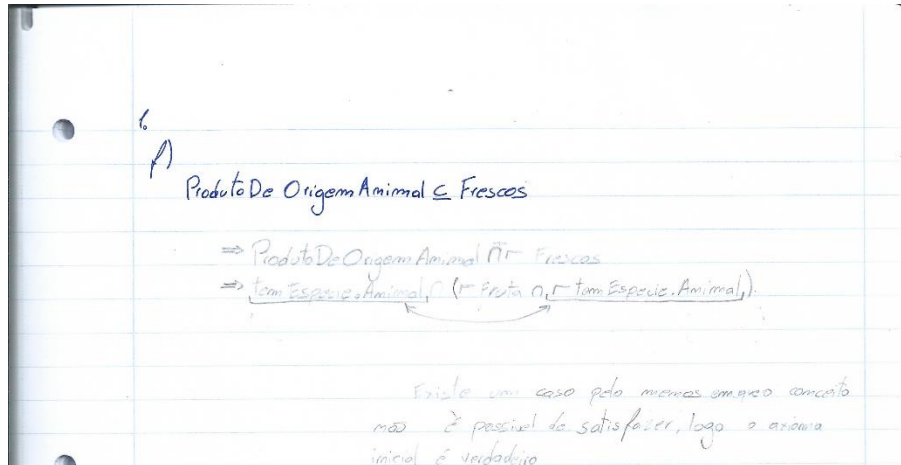 1.
f)
ProdutoDe OrigemAnimal ⊆ Frescos
⇒ ProdutoDeOrigemAnimal ⊓ ¬ Frescos
⇒ temEspecie.Animal ⊓ (¬ Fruta ⊓ ¬ temEspecie.Animal).
Existe um caso pelo menos em que o conceito
não é possivel de satisfazer, logo o axioma
inicial é verdadeiro